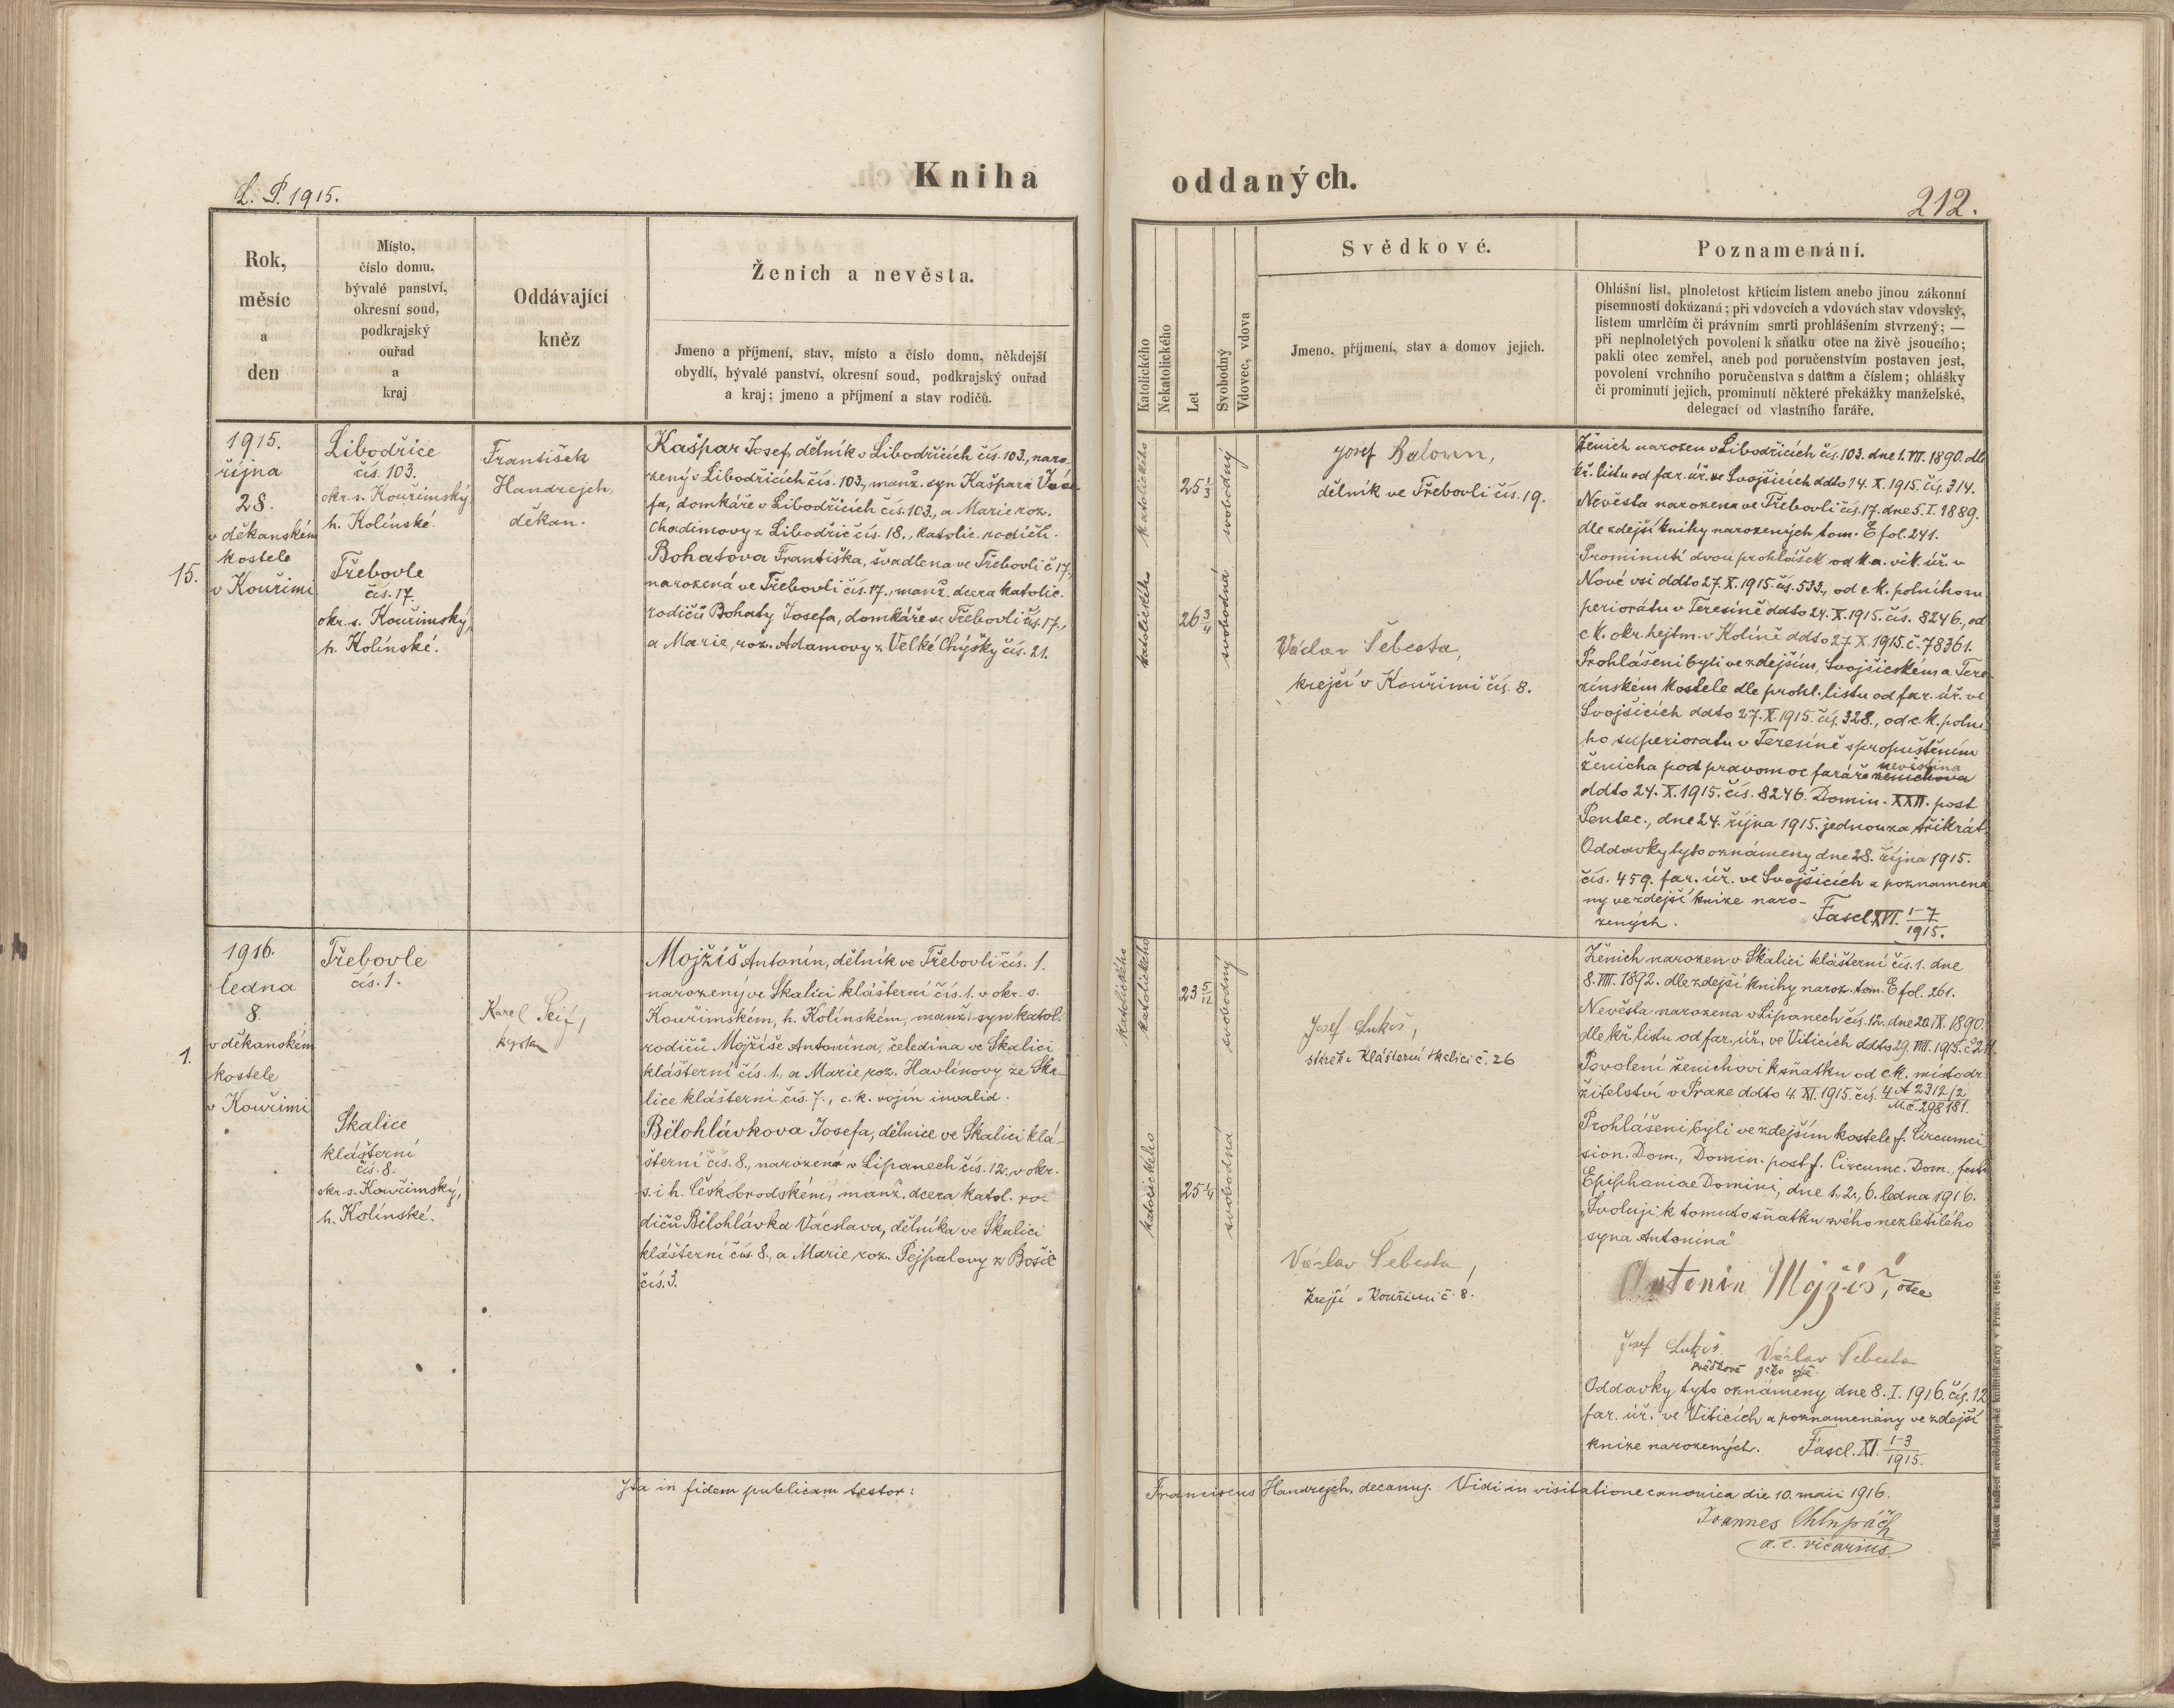 L. P. 1915.
Kniha
oddaných.
212.
Rok,
měsíc
a
den
Místo,
číslo domu,
bývalé panství,
okresní soud,
podkrajský
ouřad
a
kraj
Oddávající
kněz
Ženich a nevěsta.
Jmeno a příjmení, stav, místo a číslo domu, někdejší
obydlí, bývalé panství, okresní soud, podkrajský ouřad
a kraj; jmeno a příjmení a stav rodičů.
Katolického
Nekatolického
Let
Svobodný
Vdovec, vdova
Svědkové.
Jmeno, příjmení, stav a domov jejich.
Poznamenání.
Ohlášní list, plnoletost křticím listem anebo jinou zákonní
písemností dokázaná; při vdovcích a vdovách stav vdovský,
listem umrlčím či právním smrti prohlášením stvrzený; —
při neplnoletých povolení k sňatku otce na živě jsoucího;
pakli otec zemřel, aneb pod poručenstvím postaven jest,
povolení vrchního poručenstva s datum a číslem; ohlášky
či prominutí jejich, prominutí některé překážky manželské,
delegací od vlastního faráře.
15.
1915.
října
28.
v děkanském
kostele
v Kouřimi
Libodřice
čís. 103.
okr. s. Kouřimský
h. Kolínské.
Třebovle
čís. 17.
okr. s. Kouřimský,
h. Kolínské.
František
Handrejch,
děkan.
Kašpar Josef, dělník v Libodřicích čís. 103., naro-
zený v Libodřicích čís. 103., manž. syn Kašpara Jose-
fa, domkáře v Libodřicích čís. 103., a Marie roz.
Chadimovy z Libodřic čís. 18., katolic. rodičů.
Bohatova Františka, švadlena ve Třebovli č 17.,
narozená ve Třebovli čís. 17., manž. dcera katolic.
rodičů Bohaty Josefa, domkáře ve Třebovli čís. 17.,
a Marie, roz. Adamovy z Velké Chýšky čís. 21.
katolického
katolického
25 1/3
26 3/4
svobodný
svobodná
Josef Baloun,
dělník ve Třebovli čís. 19.
Václav Šebesta,
krejčí v Kouřimi čís. 8.
Ženich narozen v Libodřicích čís. 103. dne 1. VII. 1890. dle
kř. listu od far. úř. ve Svojšicích ddto 14. X. 1915. čís. 314.
Nevěsta narozena ve Třebovli čís. 17. dne 5. I. 1889.
dle zdejší knihy narozených tom. E fol. 241.
Prominutí dvou prohlášek od k. a. vik. úř. v
Nové vsi ddto 27. X. 1915. čís. 533., od c. k. polního su
periorátu v Teresíně ddto 24. X. 1915. čís. 8246., od
c. k. okr. hejtm. v Kolíně ddto 27. X. 1915. č. 78361.
Prohlášeni byli ve zdejším, Svojšickém a Tere-
zínském kostele dle prohl. listu od far. úř. ve
Svojšicích ddto 27. X. 1915. čís. 328., od c. k. polní
ho superioratu v Teresíně s propuštěním
ženicha pod pravomoc faráře ženichova nevěstina
ddto 24. X. 1915. čís. 8246. Domin. XXII. post
Pentec., dne 24. října 1915. jednou za třikrát.
Oddavky tyto oznámeny dne 28. října 1915.
čís. 459. far. úř. ve Svojšicích a poznamená
ny ve zdejší knize naro-
zených. Fascl. XVI. 1-7/1915.
1.
1916.
ledna
8.
v děkanském
kostele
v Kouřimi
Třebovle
čís. 1.
Skalice
klášterní
čís. 8.
okr. s. Kouřimský,
h. Kolínské.
Karel Seif,
kaplan
Mojžíš Antonín, dělník ve Třebovli čís. 1.
narozený ve Skalici klášterní čís. 1. v okr. s.
Kouřimském, h. Kolínském, manž. syn katol.
rodičů Mojžíše Antonína, čeledína ve Skalici
klášterní čís. 1., a Marie, roz. Havlínovy ze Ska-
lice klášterní čís. 7., c. k. vojín invalid.
Bělohlávkova Josefa, dělnice ve Skalici klá-
šterní čís. 8., narozená v Lipanech čís. 12., v okr.
s. i h. Českobrodském, manž. dcera katol. ro-
dičů Bělohlávka Václava, dělníka ve Skalici
klášterní čís. 8., a Marie, roz. Pejpalovy z Bošic
čís. 3.
katolického
katolického
katolického
23 5/12
25 1/4
svobodný
svobodná
Josef Lukeš,
Klášterní Skalici č. 26
Václav Šebesta,
krejčí v Kouřimi č. 8.
Ženich narozen v Skalici klášterní čís. 1. dne
8. VIII. 1892. dle zdejší knihy naroz. tom. E fol. 261.
Nevěsta narozena v Lipanech čís. 12. dne 20. IX. 1890.
dle kř. listu od far. úř. ve Viticích ddto 29. VIII. 1915.
Povolení ženichovi k sňatku od c. k. místodr-
žitelství v Praze ddto 4. XI. 1915. čís. 4 A 2312/2
M.č. 298181.
Prohlášeni byli ve zdejším kostele f. Circumci
sion. Dom., Domin. post f. Circumc. Dom., festo
Epiphaniae Domini, dne 1., 2., 6. ledna 1916.
„Svoluji k tomuto sňatku svého nezletilého
syna Antonína"
Antonín Mojžíš, otec
Josef Lukeš. Václav Šebesta
svědkové jako výš.
Oddavky tyto oznámeny dne 8. I. 1916. čís. 12
far. úř. ve Viticích a poznamenány ve zdejší
knize narozených. Fascl. XI. 1-3/1915.
Ita in fidem publicam testor:
Franciscus Handrejch, decanus. Vidi in visitatione canonica die 10. maii 1916.
Joannes Chlupáč
a. e. vicarius.
Tiskem knížecí arcibiskupské knihtiskárny v Praze 1898.